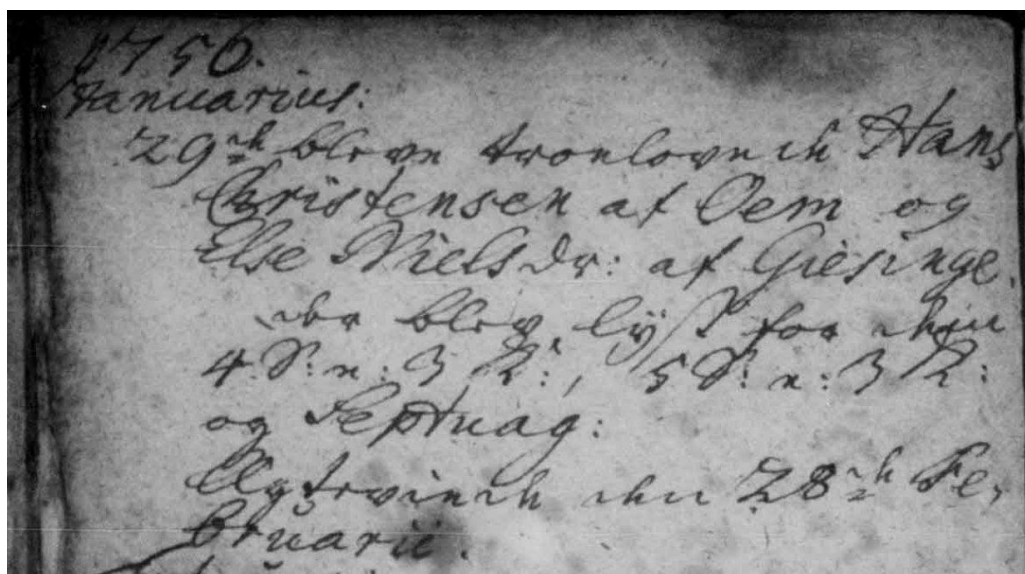 1756.
Januarius:
29de bleve troelovede Hans
Christensen af Oem og
Else Nielsdr: af Giesinge.
der blev lyst for dem
4 S: e: 3 K:, 5 S: e: 3 K:
og Septuag:
Egteviede den 28de Fe-
bruarii.